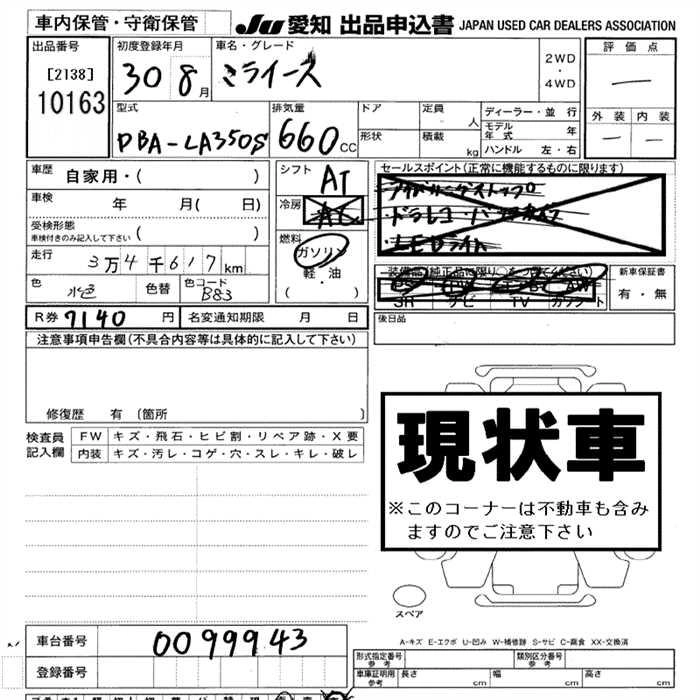 車内保管・守衛保管
JU 愛知 出品申込書 JAPAN USED CAR DEALERS ASSOCIATION
出品番号
[2138]
10163
初度登録年月
30 8月
車名・グレード
ミライース
2WD
・
4WD
評価点
—
外装 内装
— —
型式
DBA-LA350S
排気量
660cc
ドア
形状
定員 人
積載 kg
ディーラー・並行
モデル年式 年
ハンドル 左・右
車歴 自家用・( )
車検 年 月( 日)
受検形態
車検付きのみ記入して下さい ( )
走行 3万4千617km
色 水色 色替 色コード B83
シフト AT
冷房 AC
燃料
ガソリン
軽・油
( )
セールスポイント(正常に機能するものに限ります)
アイドリングストップ
・ドラレコ・
・LEDライト
装備品(純正品に限り○をつけてください)
SR ナビ TV
新車保証書
有・無
R券 7140円 名変通知期限 月 日
後日品
注意事項申告欄(不具合内容等は具体的に記入して下さい)
修復歴 有 〔箇所 〕
検査員
記入欄
FW キズ・飛石・ヒビ割・リペア跡・X要
内装 キズ・汚レ・コゲ・穴・スレ・キレ・破レ
現状車
※このコーナーは不動車も含み
ますのでご注意下さい
スペア
A-キズ E-エクボ U-凹み W-補修跡 S-サビ C-腐食 XX-交換済
車台番号 0099943
登録番号
形式指定番号
参考
類別区分番号
参考
車庫証明用
参考
長さ cm 幅 cm 高さ cm